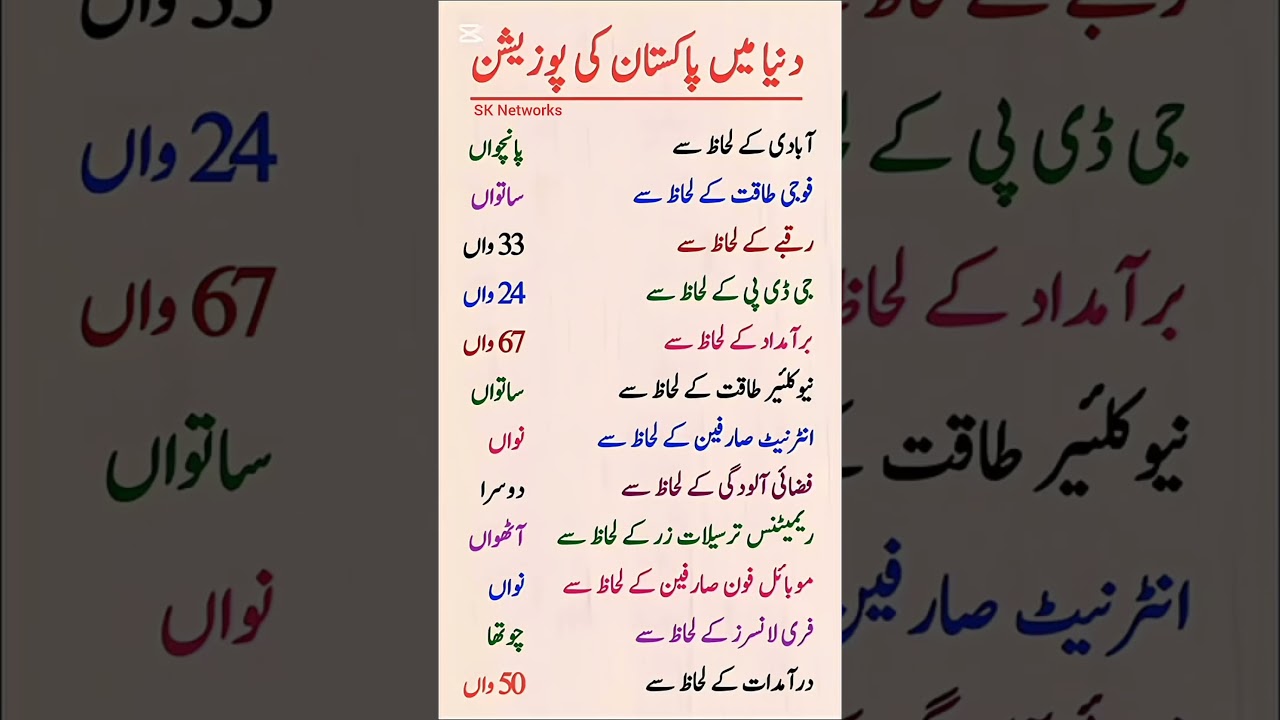 دنیا میں پاکستان کی پوزیشن
SK Networks
آبادی کے لحاظ سے پانچواں
فوجی طاقت کے لحاظ سے ساتواں
رقبے کے لحاظ سے 33 واں
جی ڈی پی کے لحاظ سے 24 واں
برآمداد کے لحاظ سے 67 واں
نیوکلئیر طاقت کے لحاظ سے ساتواں
انٹرنیٹ صارفین کے لحاظ سے نواں
فضائی آلودگی کے لحاظ سے دوسرا
ریمیٹنس ترسیلات زر کے لحاظ سے آٹھواں
موبائل فون صارفین کے لحاظ سے نواں
فری لانسرز کے لحاظ سے چوتھا
درآمدات کے لحاظ سے 50 واں